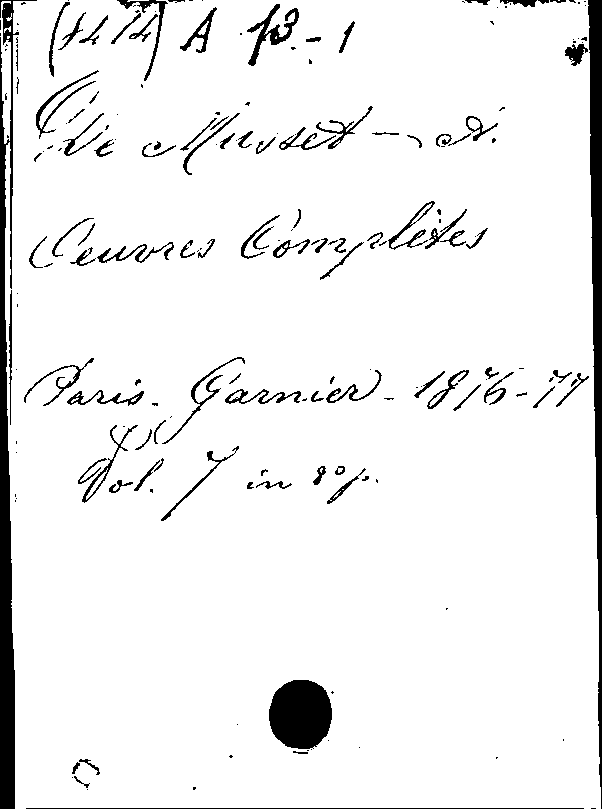 A 13.-1
De Musset - A.
Oeuvres Complètes
Paris - Garnier - 1876-77
Vol. 7 in 8° p.